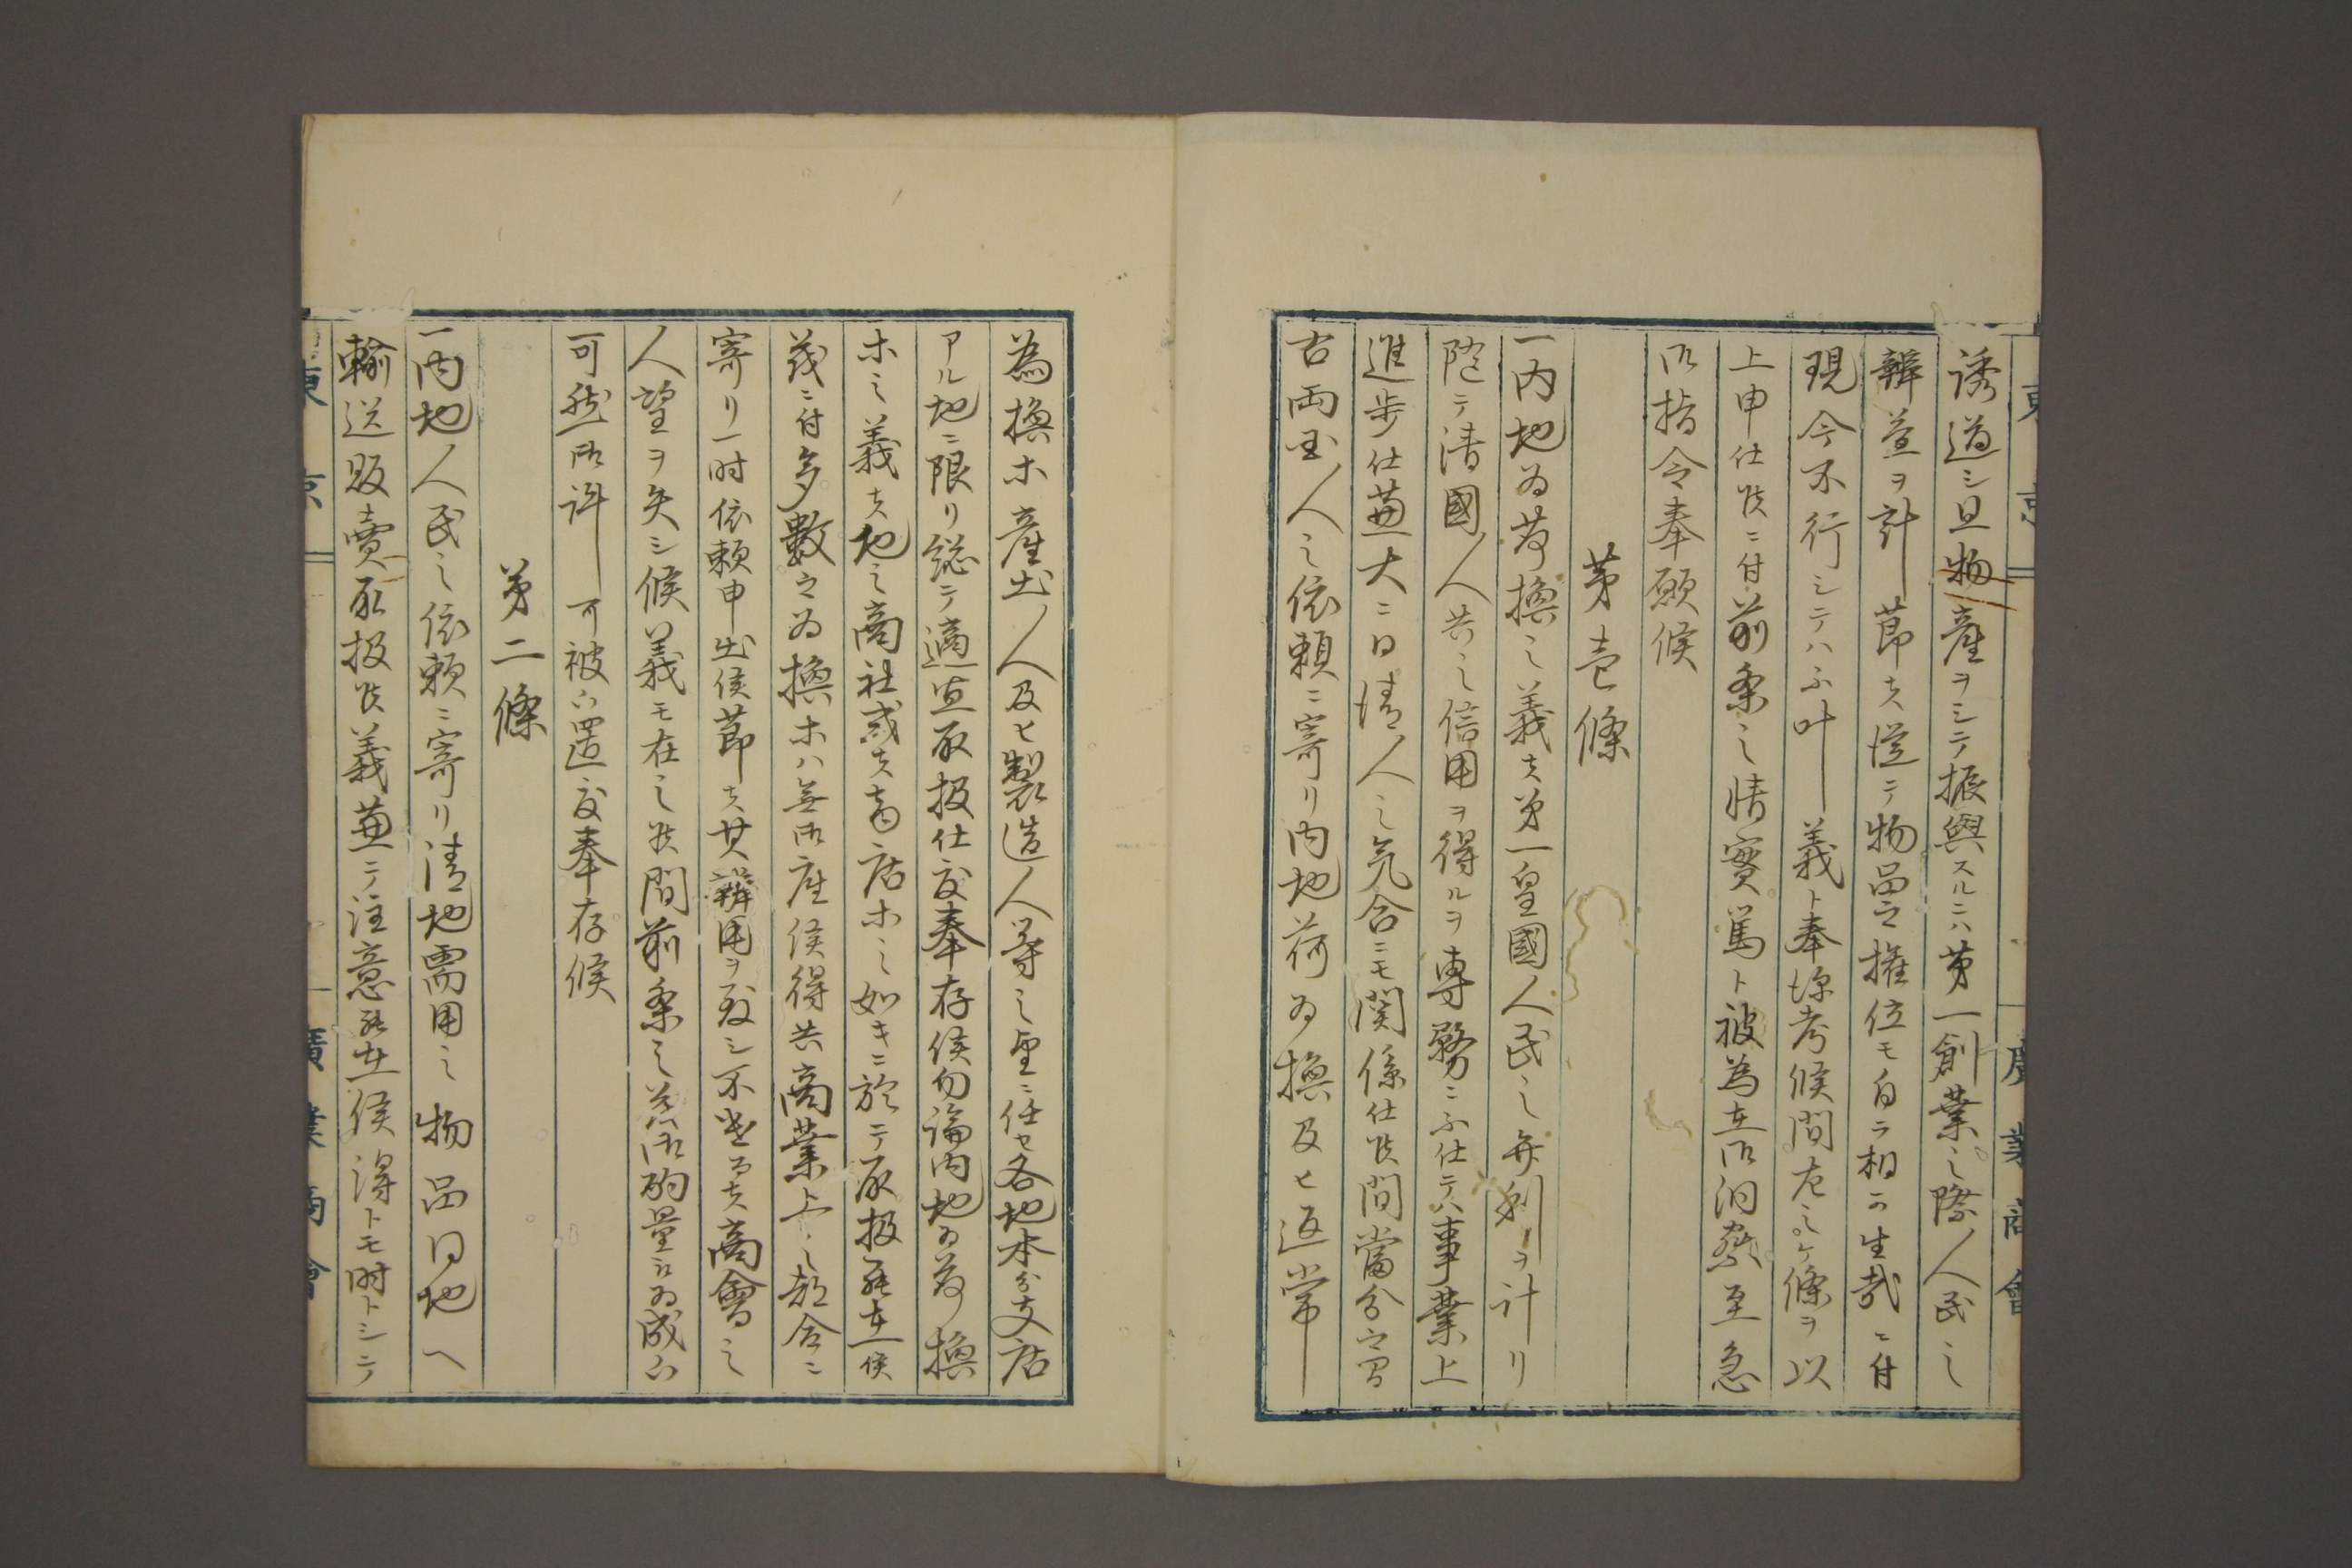 誘導シ且物産ヲシテ振興スルニハ第一創業之際人民之
辨益ヲ計ル節ハ従テ物品之権位モ自ラ相立生哉ニ付
現今不行シテハ不叶義ト奉存候間左之ケ條ヲ以
上申仕候ニ付前条之情實篤ト被為在御洞察至急
御指令奉願候
第壱條
一内地為荷換之義ハ第一皇國人民之弁利ヲ計リ
随テ清國人共之信用ヲ得ルヲ専務ニ不仕テハ事業上
進歩仕兼大ニ日清人之気合ニモ関係仕候間當分之間
右両国人之依頼ニ寄リ内地荷為換及ヒ返常
為換ホ産出人及ヒ製造人等之望ニ任セ各地本分支店
アル地ニ限リ総テ適宜取扱仕度奉存候勿論内地為荷換
ホ之義ハ他之商社或ハ商店ホ之如キニ於テ取扱罷在候
義ニ付多数之為換ホハ無御座候得共商業上之都合ニ
寄リ一時依頼申出候節ハ其辨用ヲ致シ不遣ハ商會之
人望ヲ失シ候義モ在之候間前条之義御酌量被為成下
可然御許可被下置度奉存候
第二條
一内地人民之依頼ニ寄リ清地需用之物品同地ヘ
輸送販賣取扱候義兼テ注意罷在候得トモ時トシテ
東京
廣業商會